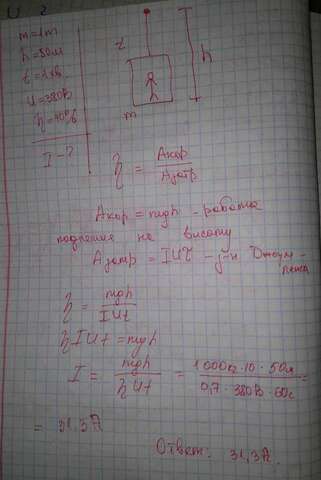 m=1т
h=50м
t=1хв
U=380В
η=40%
I-?
t
h
m
η = Aкор / Aзатр
Aкор = mgh - работа
поднятия на высоту
Aзатр = IUt - з-н Джоуля-
Ленца
η = mgh / IUt
ηIUt = mgh
I = mgh / ηUt = 1000кг·10·50м / 0,7·380В·60с =
= 31,3A
Ответ: 31,3A.